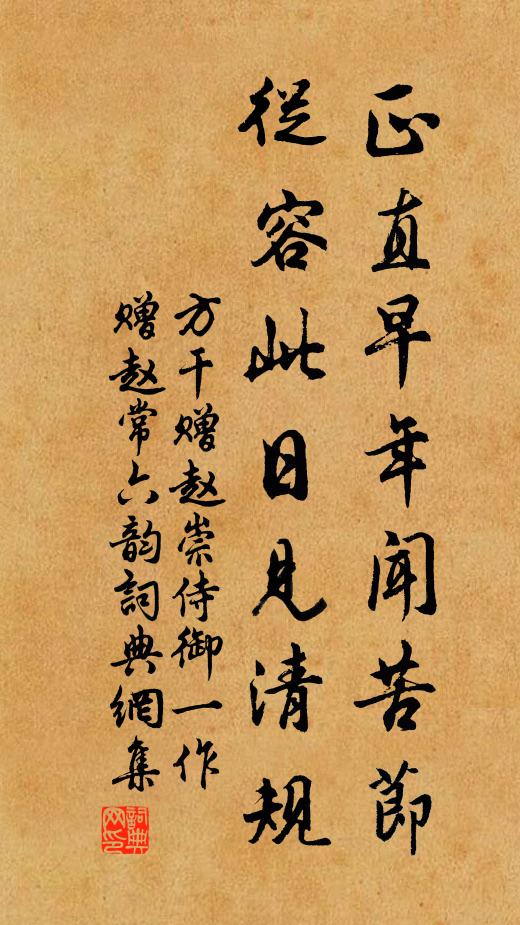 正直早年闻苦節
從容此日見清規
方干赠赵崇侍御一作
赠赵常六韵詞典網集
詞典网印